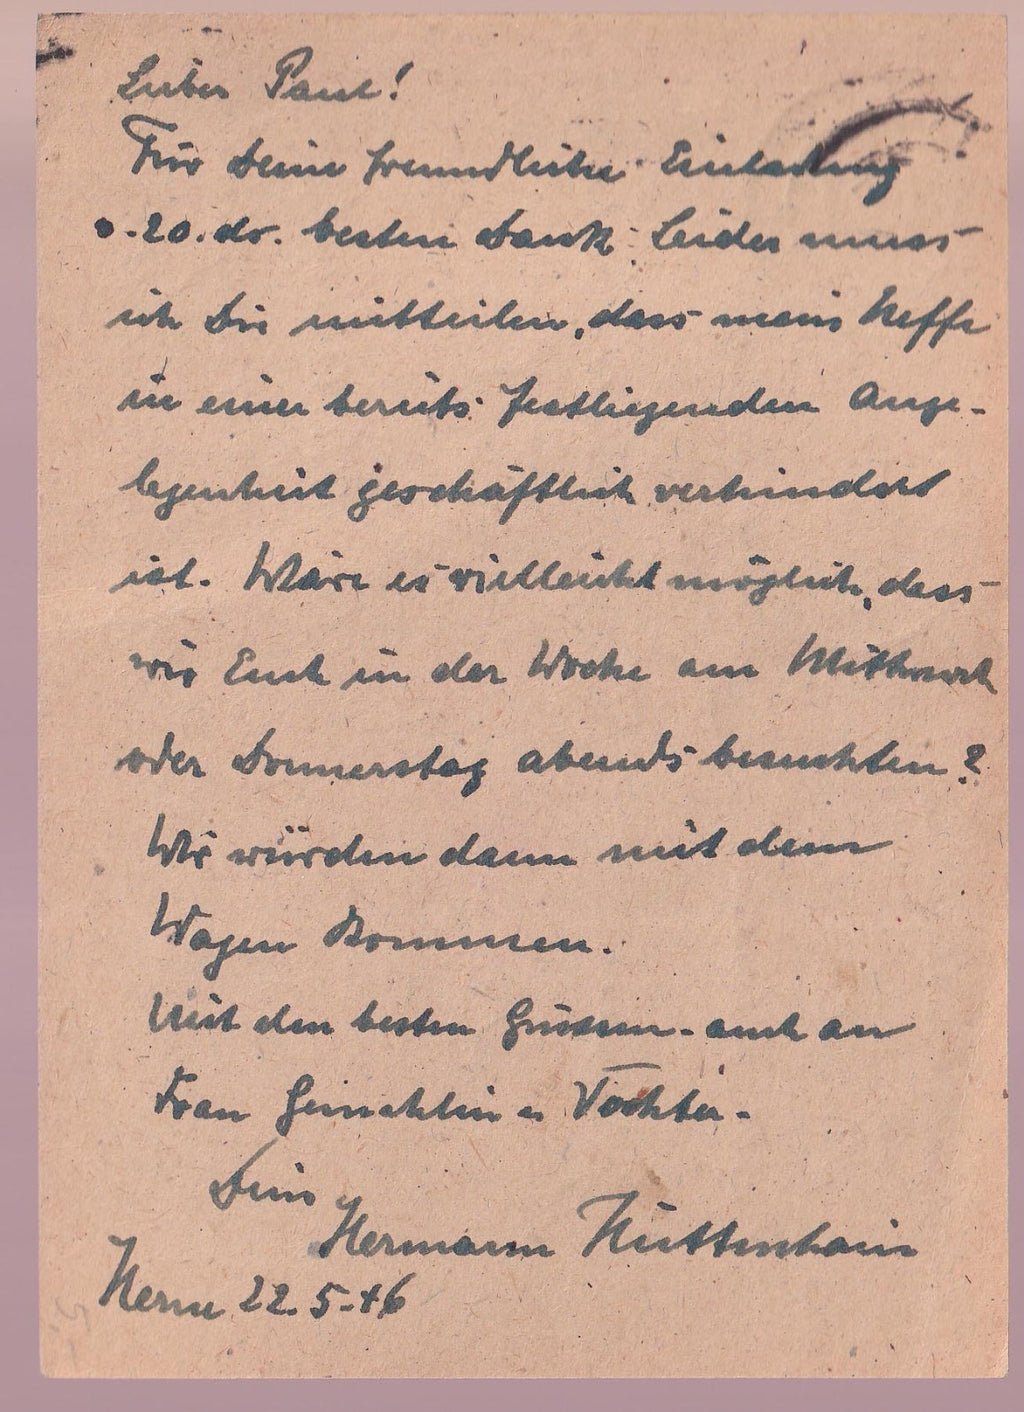 Lieber Paul!
Für Deine freundliche Einladung
v. 20. ds. besten Dank. Leider muss
ich Dir mitteilen, dass mein Neffe
in einer bereits festliegenden Ange-
legenheit geschäftlich verhindert
ist. Wäre es vielleicht möglich, dass
wir Euch in der Woche am Mittwoch
oder Donnerstag abends besuchten?
Wir würden dann mit dem
Wagen kommen.
Mit den besten Grüssen - auch an
Frau Gemahlin u. Tochter -
Dein
Hermann Hüttenhain
Herne 22.5.46